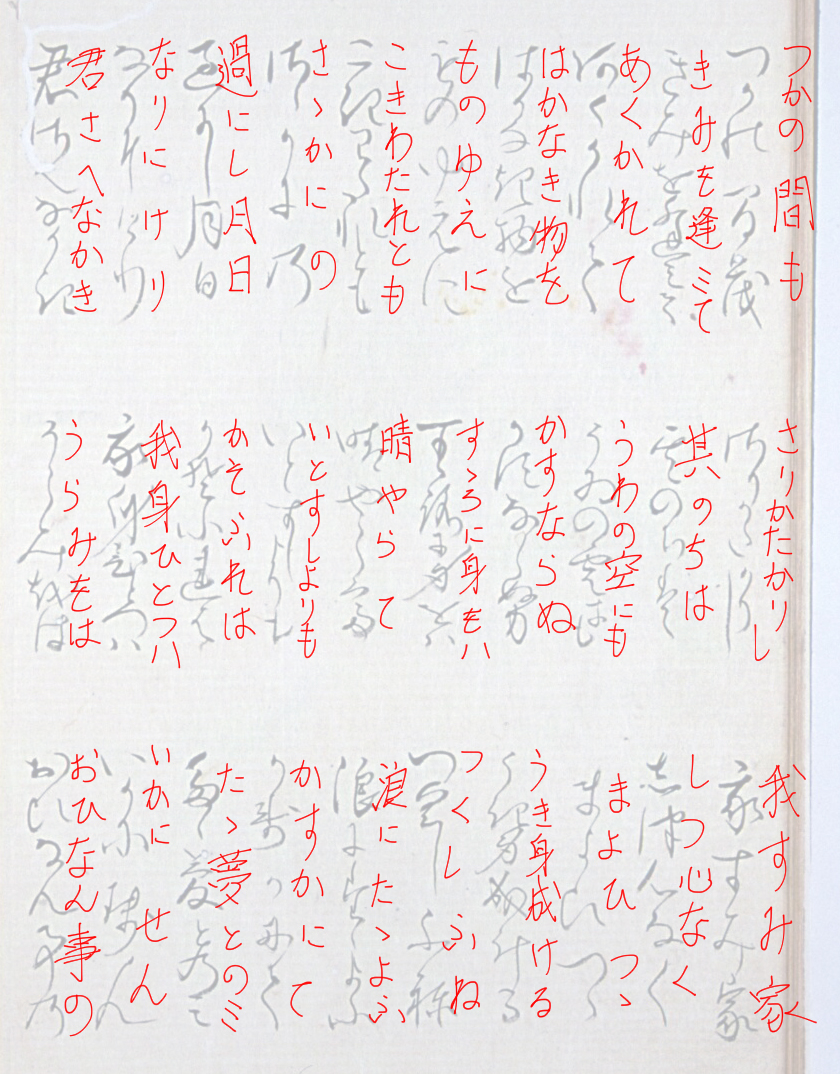 つかの間も さりかたかりし 我すみ家
きみを逢ミて 其のちは しつ心なく
あくかれて うわの空にも まよひつゝ
はかなき物を かすならぬ うき身成ける
ものゆえに すゝろに身をハ つくしふね
こきわたれとも 晴やらて 浪にたゝよふ
さゝかにの いとすしよりも かすかにて
過にし月日 かそふれは たゝ夢とのミ
なりにけり 我身ひとつハ いかにせん
君さへなかき うらみをは おひなん事の